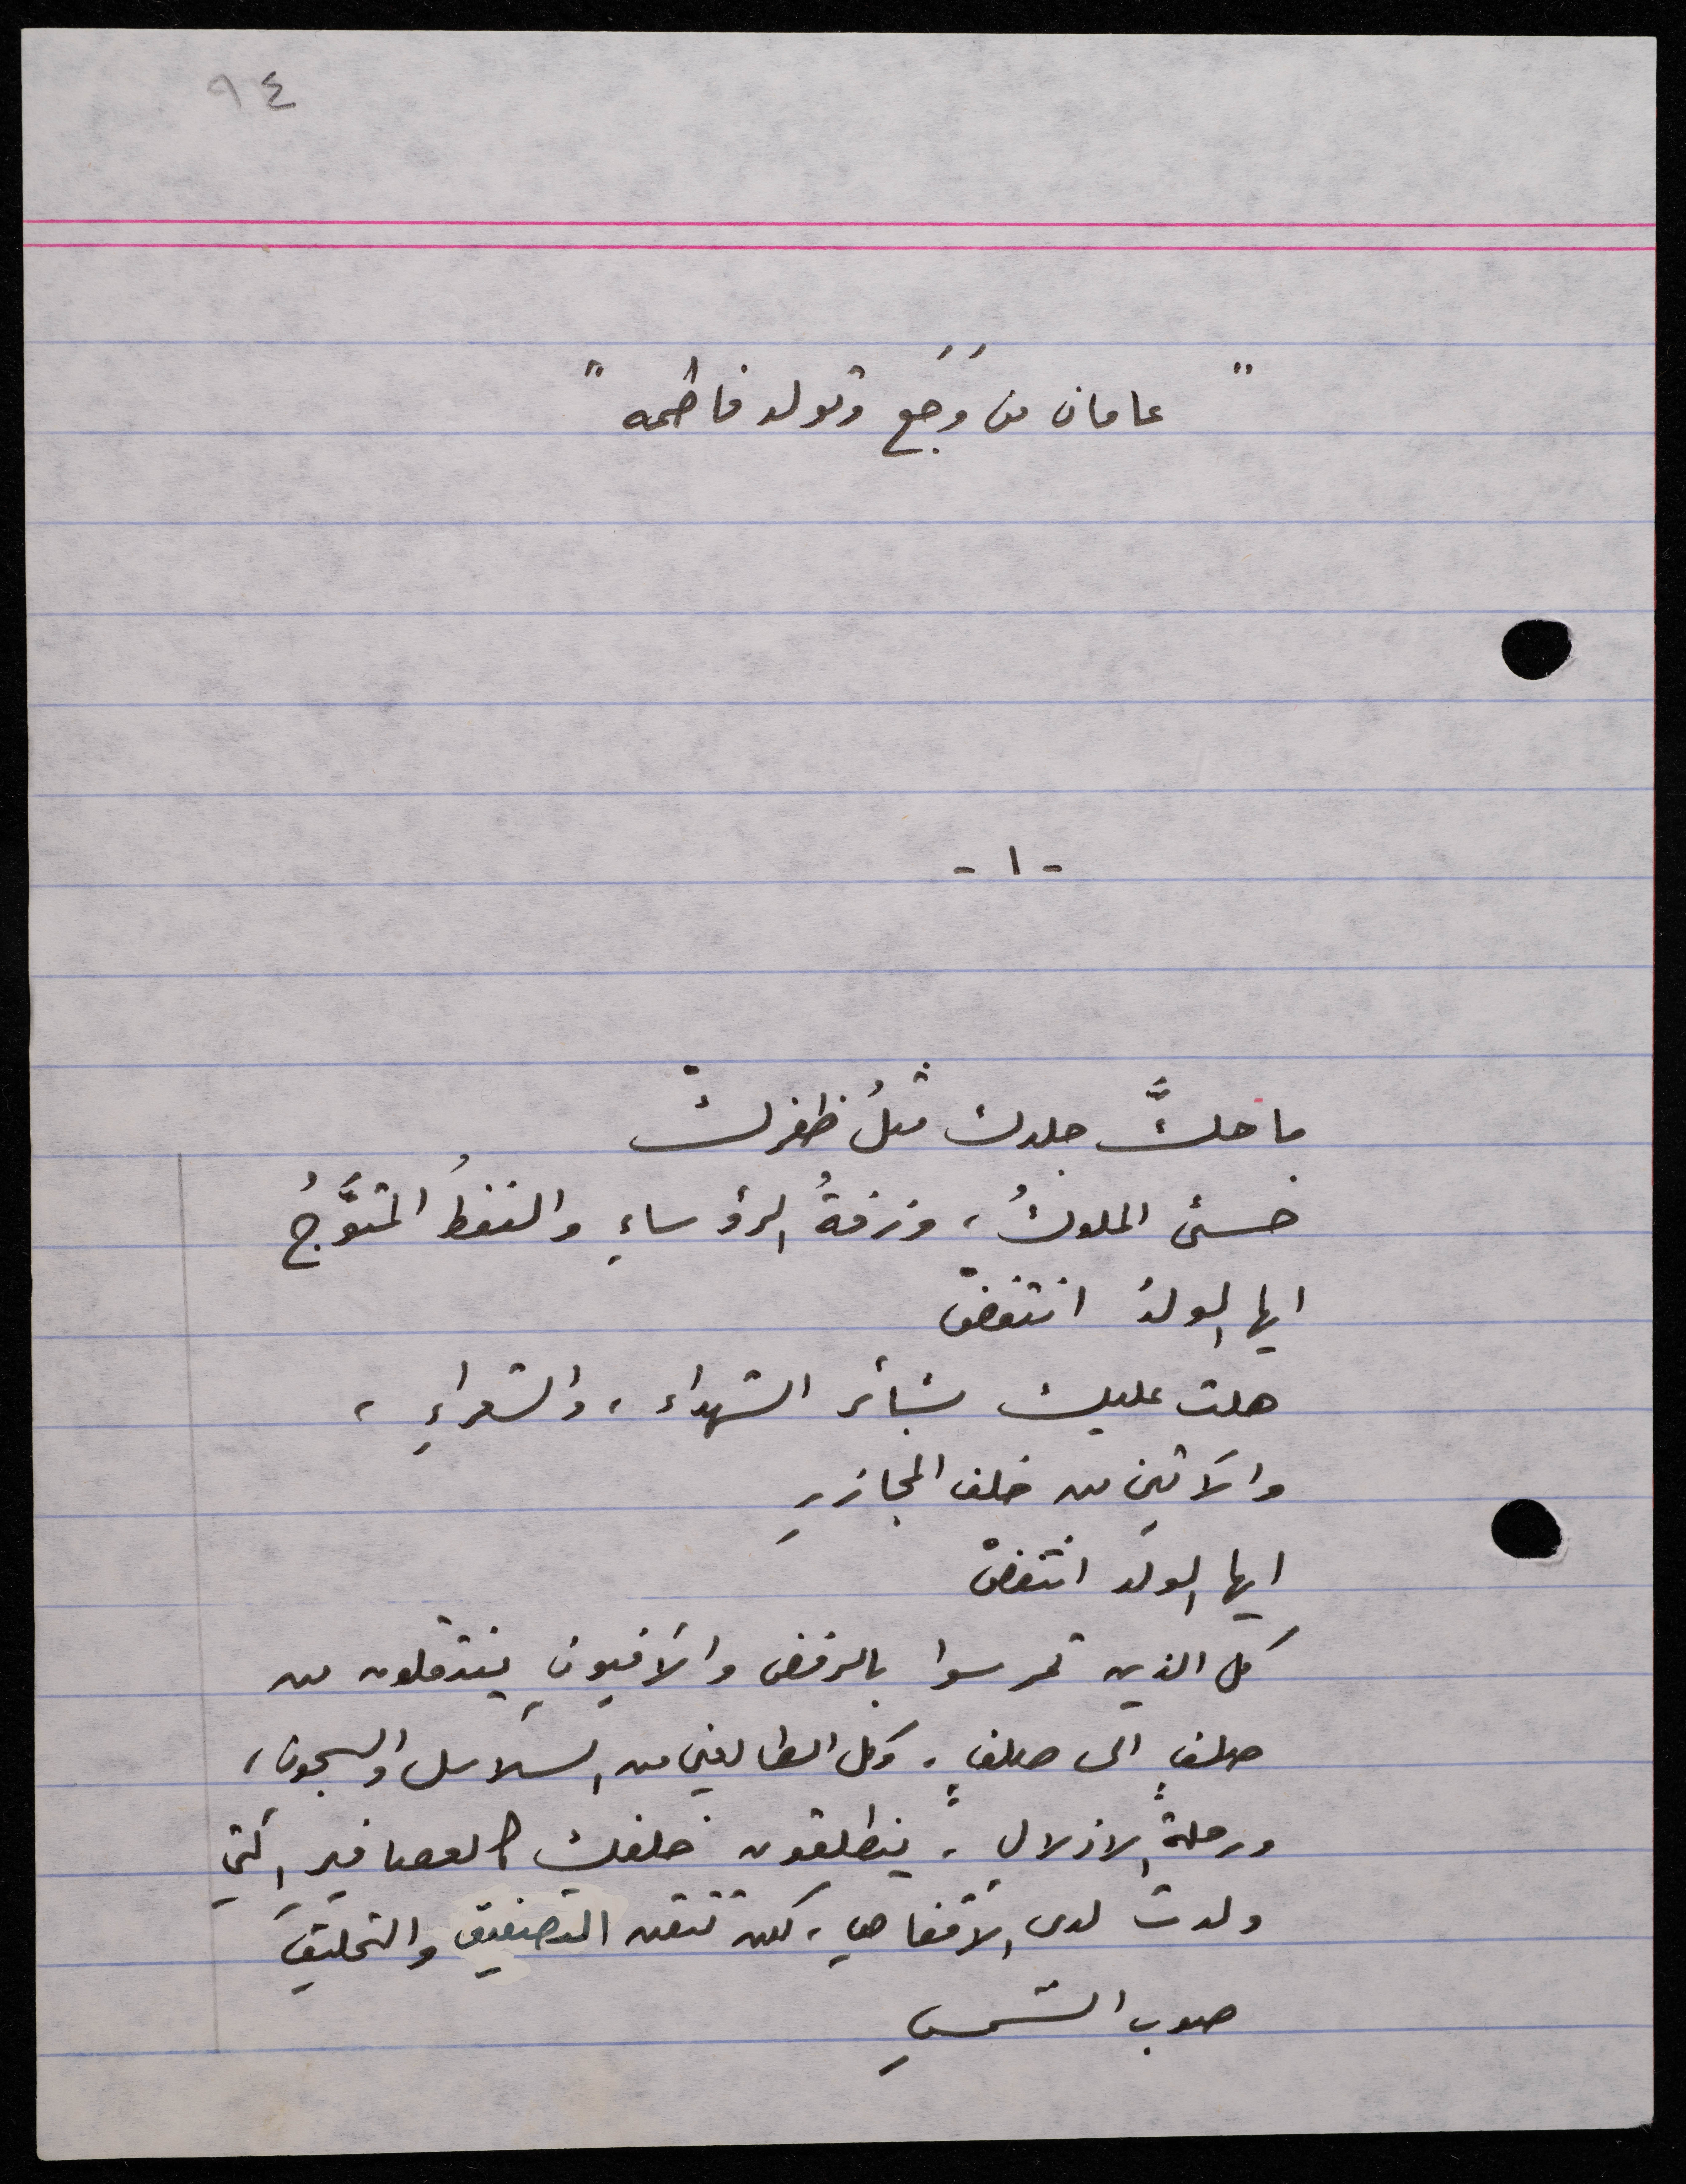 ٩٤
" عامان من وَجَع وتولد فاطمه "
- ١ -
ما حكَّ جلدك مثلُ ظفركْ
خسئ الملوكُ ، وزفةُ الرؤساءِ والنفطُ المتوَّجُ
ايها الولدُ انتفضْ
هلت عليك بشائر الشهداء ، والشعراءِ ،
والآتين من خلف المجازرِ
ايها الولد انتفضْ
كل الذين تمرسوا بالرفض والأفيونِ ينتقلون من
صلفٍ الى صلفٍ ، وكل الطالعين من السلاسل والسجون ،
ورحلةِ الاذلالِ ، ينطلقون خلفك كالعصافير التي
ولدت لدى الأقفاصِ ، لكن تتقن التصفيق والتحليقَ
صوب الشمسِ